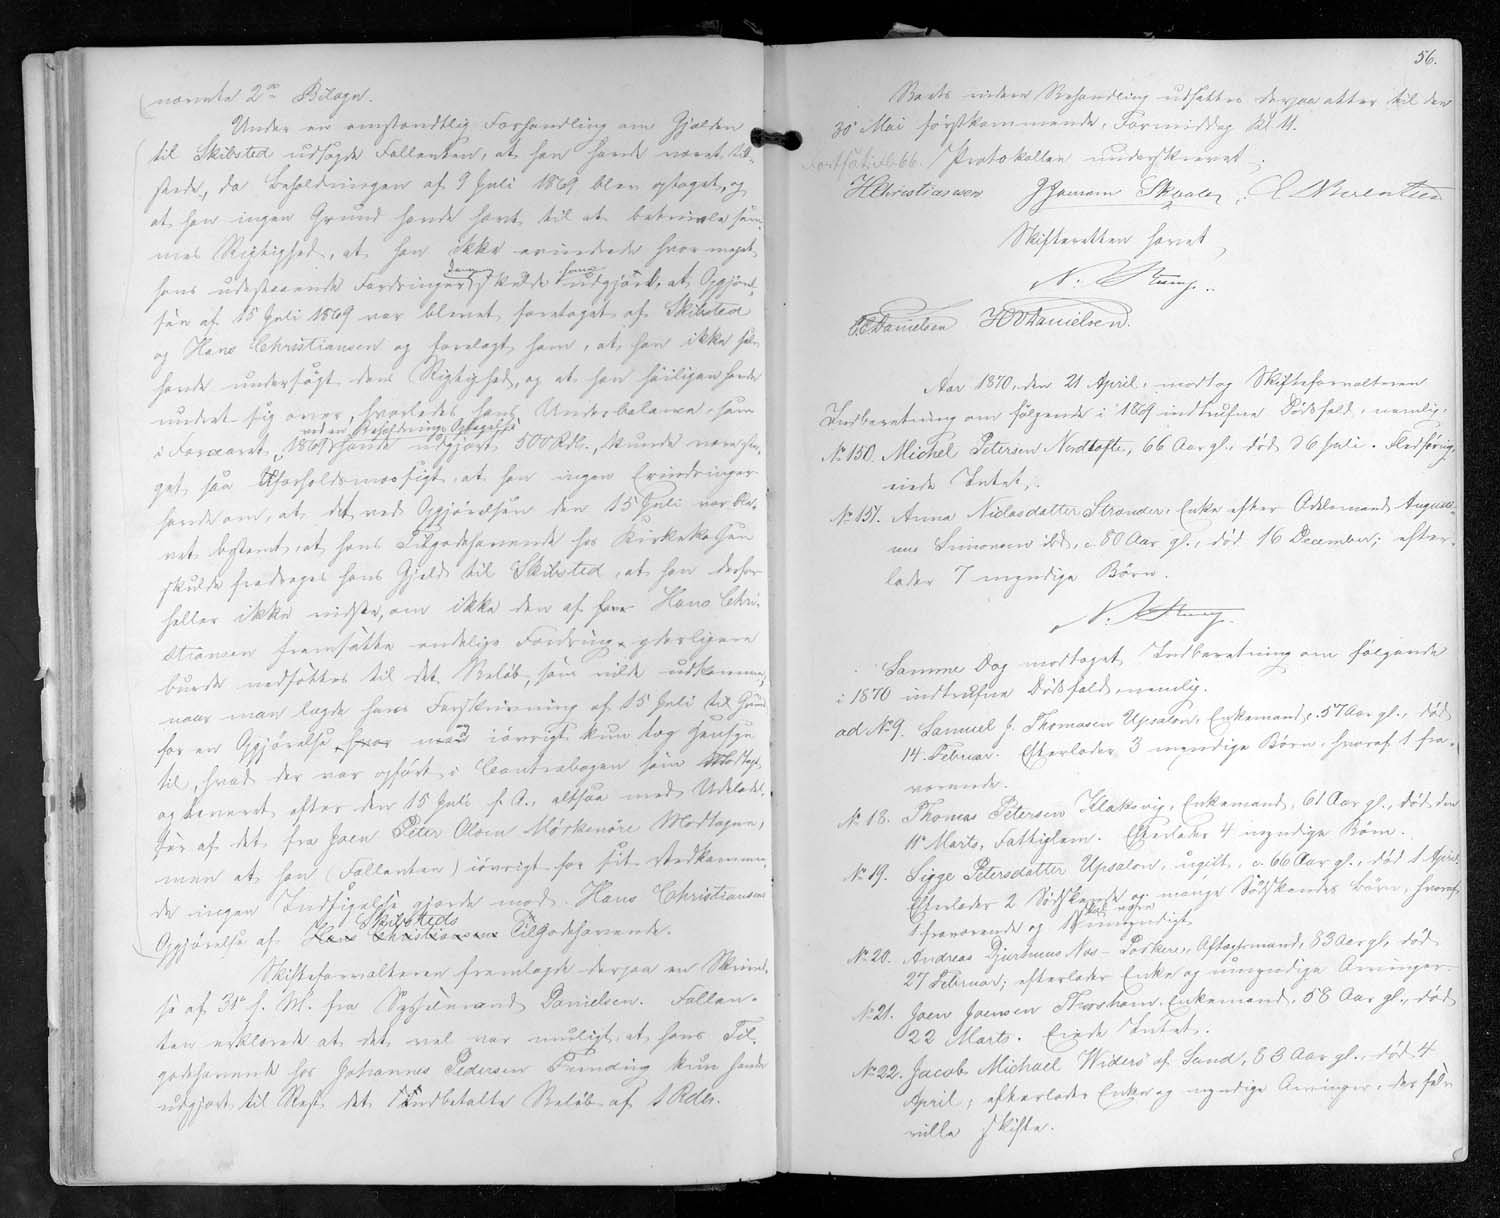 nævnte 2de Bilage.
Under en omstændtlig Forhandling om Gjælden
til Skibsted udsagde Fallenten, at han havde været til-
stede, da Beholdningen af 9 Juli 1869 blev optaget, og
at han ingen Grund havde havt til at betvivle sam-
mes Rigtighed, at han ikke erindrede hvor meget
hans udestaaende Fordringer dengang skulde have udgjort, at Opgjørel-
sen af 15 Juli 1869 var blevet foretaget af Skibsted
og Hans Christiansen og forelagt ham, at han ikke selv
havde undersøgt dens Rigtighed, og at han heiligen havde
undret sig over, hvorledes hans Underbalance, som
i Foraaret 1869 ved en Beholdnings Optagelse havde udgjort 500 Rdl., kunde være ste-
get saa uforholdsmæssigt, at han ingen Erindringer
havde om, at det ved Opgjørelsen den 15 Juli var ble-
vet bestemt, at hans Tilgodehavende hos Kirkekassen
skulde fradrages hans Gjeld til Skibsted, at han derfor
heller ikke vidste, om ikke den af Hans Chri-
stiansen fremsatte endelige Fordring yderligere
burde nedsættes til det Beløb, som vilde udkomme,
naar man lagde hans Forskrivning af 15 Juli til Grund
for en Opgjørelse og iøvrigt kun tog Hensyn
til, hvad der var opført i Contrabogen som Modtaget
og Leveret efter den 15 Juli f. A., altsaa med Udeladel-
se af det fra Joen Peter Olsen Mørkenøre Modtagne,
men at han (Fallenten) iøvrigt for sit Vedkommen-
de ingen Indsigelse gjorde mod Hans Christiansens
Opgjørelse af Hans Christiansens Skibsteds Tilgodehavende.
Skifteforvalteren fremlagde derpaa en Skrivel-
se af 31te f. M. fra Sysselmand Danielsen. Fallen-
ten erklærede at det vel var muligt, at hans Til-
godehavende hos Johannes Pedersen Funding kun havde
udgjort til Rest det indbetalte Beløb af 1 Rdlr.
56.
Boets videre Behandling udsattes derpaa atter til den
30te Mai førstkommende, Formiddag Kl. 11.
Fortsat fol. 66. Protokollen underskrevet
HChristiansen J Joensen Skaale
Skifteretten hævet
C.C. Danielsen HO Danielsen.
Aar 1870, den 21 April, modtog Skifteforvalteren
Indberetning om følgende i 1869 indtrufne Dødsfald, nemlig:
No 150. Michel Petersen Nordtofte, 66 Aar gl., død 26 Juli. Fledføring,
eiede Intet.
No 151. Anna Niclasdatter Strander, Enke efter Odelsmand Augusti-
nus Simonsen ibd., c. 80 Aar gl., død 16 December; efter-
lader 7 myndige Børn.
Samme Dag modtoges Indberetning om følgende
i 1870 indtrufne Dødsfald, nemlig:
ad No 9. Samuel J. Thomasen Upsalon, Enkemand, c. 57 Aar gl., død
14. Februar. Efterlader 3 myndige Børn, hvoraf 1 fra-
værende.
No 18. Thomas Petersen Klaksvig, Enkemand, 61 Aar gl., død den
11te Marts, Fattiglem. Efterlader 4 myndige Børn.
No 19. Sigge Petersdatter Upsalon, ugift, c. 66 Aar gl., død 1 April.
Efterlader 2 Sødskende og mange Sødskendes Børn, hvoraf
1 fraværende og skal være umyndigt.
No 20. Andreas Djurhuus Næs - Porkere, Aftægtsmand, 83 Aar gl., død
27 Februar; efterlader Enke og umyndige Arvinger.
No 21. Joen Joensen Thorshavn, Enkemand, 58 Aar gl., død
22 Marts. Eiede Intet.
No 22. Jacob Michael Widerø af Sund, 83 Aar gl., død 4
April; efterlader Enke og myndige Arvinger, der selv
ville skifte.